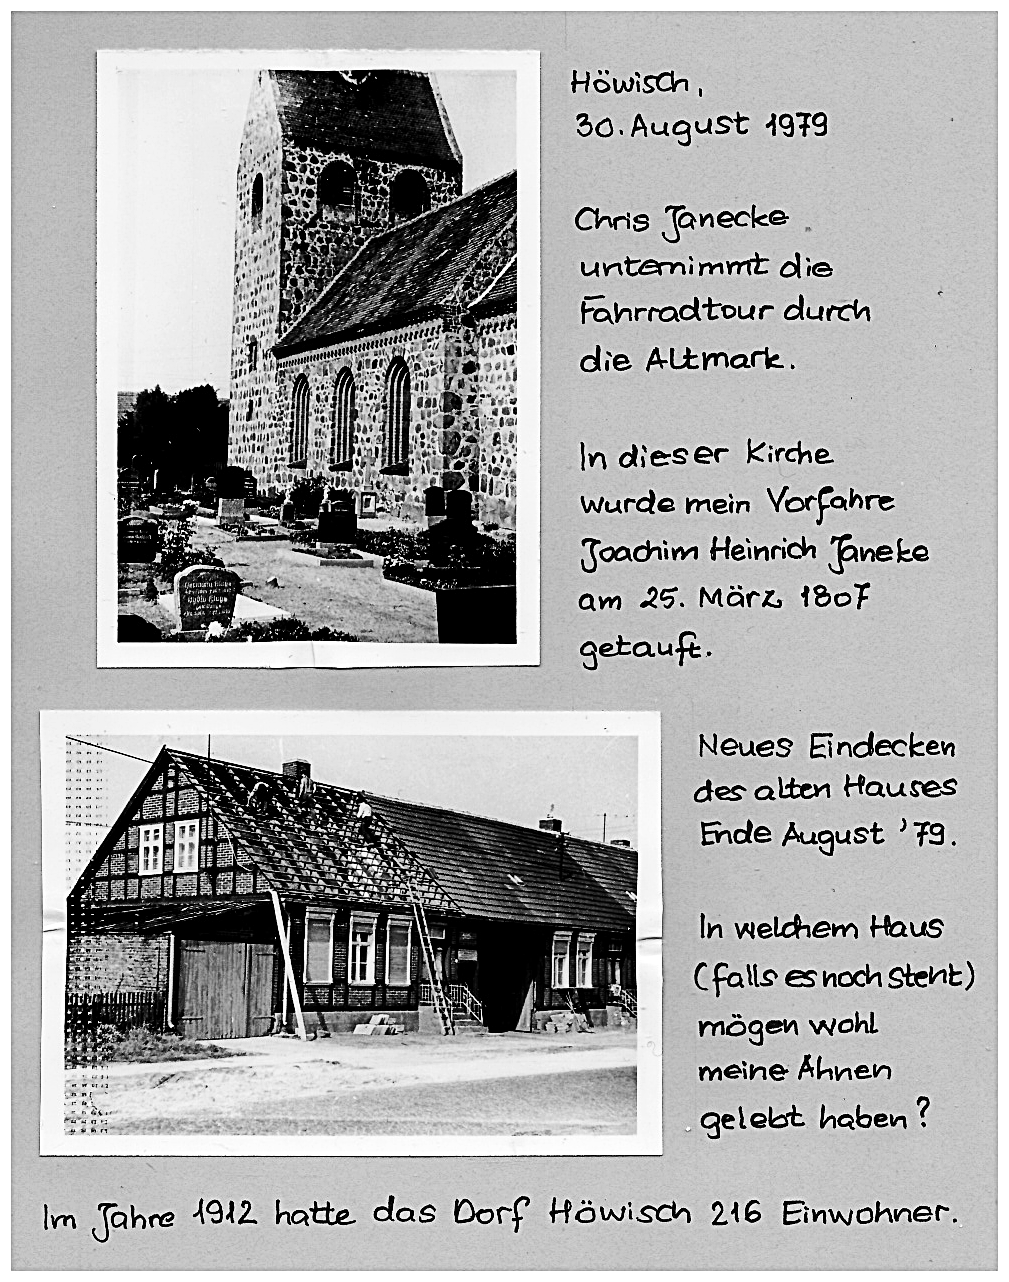 Höwisch,
30. August 1979
Chris Janecke
unternimmt die
Fahrradtour durch
die Altmark.
In dieser Kirche
wurde mein Vorfahre
Joachim Heinrich Janeke
am 25. März 1807
getauft.
Neues Eindecken
des alten Hauses
Ende August '79.
In welchem Haus
(falls es noch steht)
mögen wohl
meine Ahnen
gelebt haben?
Im Jahre 1912 hatte das Dorf Höwisch 216 Einwohner.